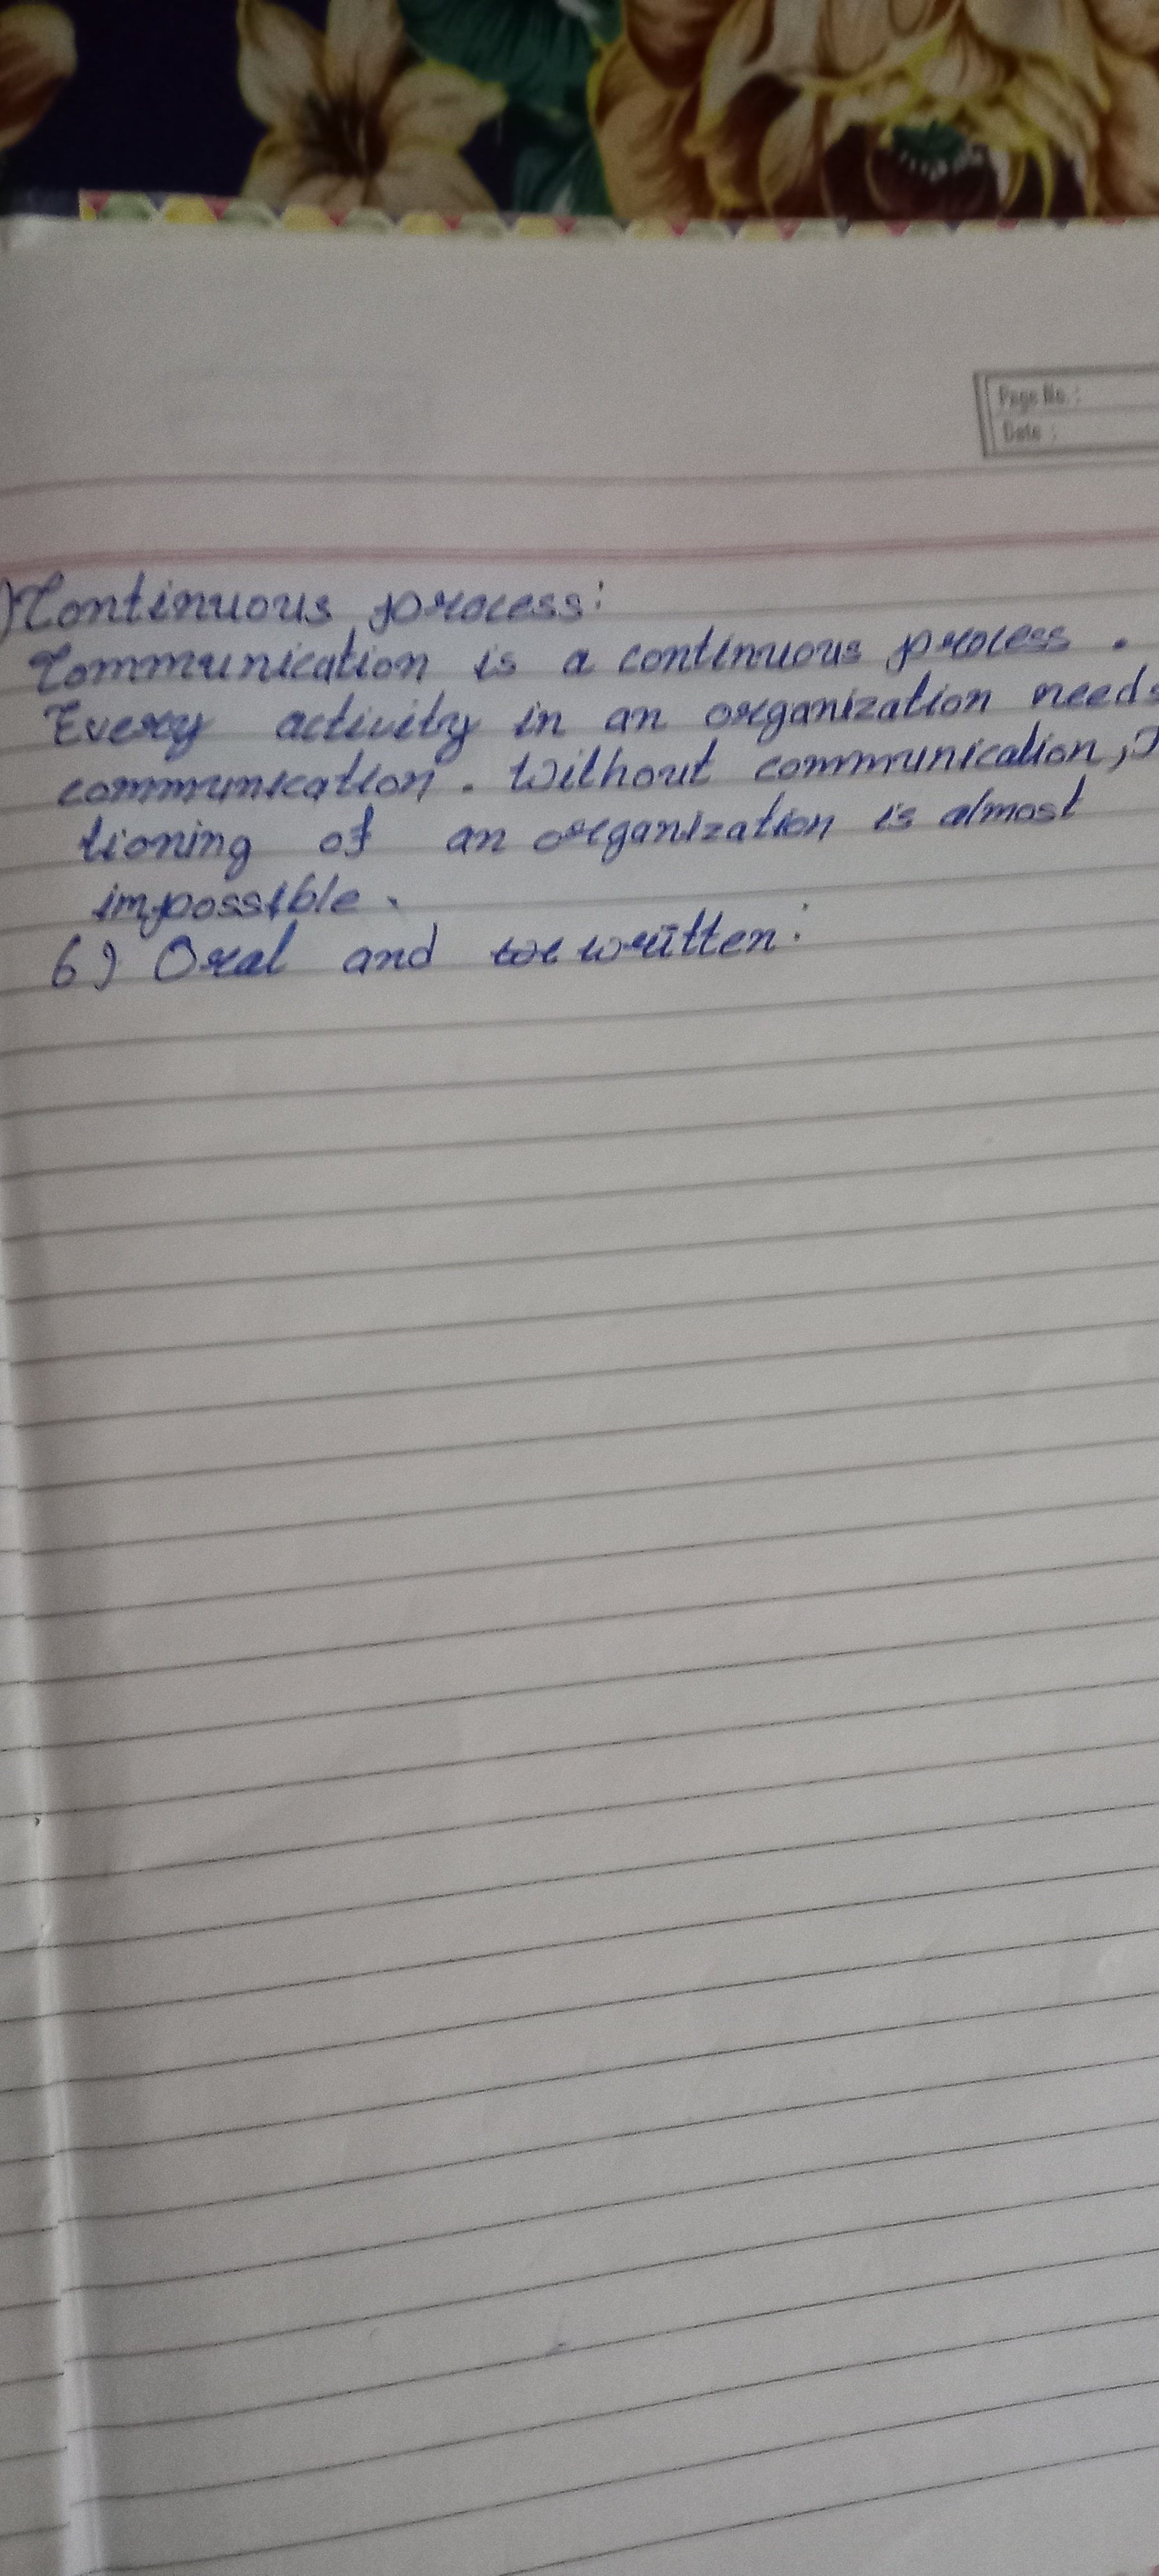 Page No. :
Date :
) Continuous process:
Communication is a continuous process.
Every activity in an organization needs
communication. Without communication,
tioning of an organization is almost
impossible.
6) Oral and written: